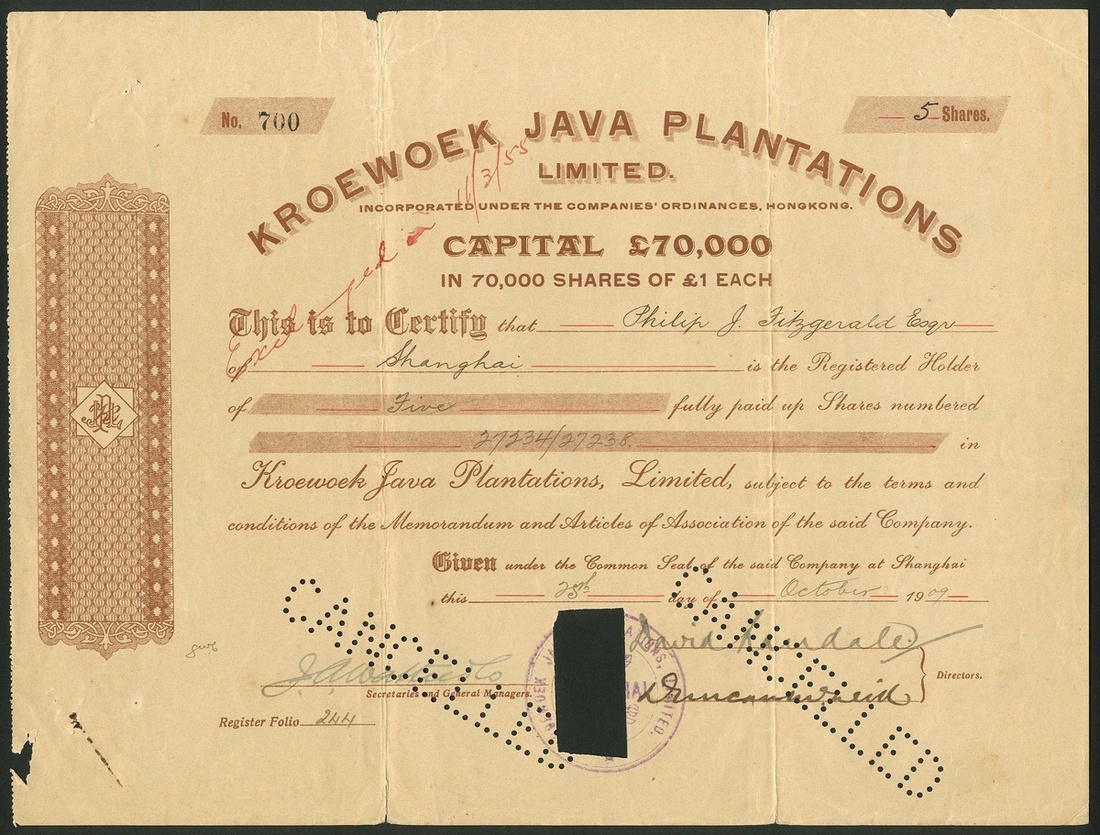 No. 700
5 Shares.
KROEWOEK JAVA PLANTATIONS
LIMITED.
INCORPORATED UNDER THE COMPANIES' ORDINANCES, HONGKONG.
CAPITAL £70,000
IN 70,000 SHARES OF £1 EACH
Exchanged 11/3/55
This is to Certify that Philip J. Fitzgerald Esqr
of Shanghai is the Registered Holder
of Five fully paid up Shares numbered
27234/27238 in
Kroewoek Java Plantations, Limited, subject to the terms and
conditions of the Memorandum and Articles of Association of the said Company.
Given under the Common Seal of the said Company at Shanghai
this 25th day of October 1909
CANCELLED
CANCELLED
David
Duncan
Directors.
Secretaries and General Managers.
Register Folio 244